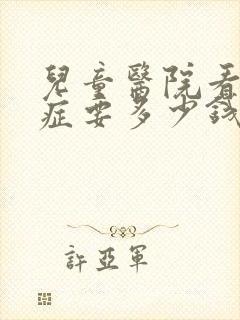 兒童醫院看
症要多少錢
許亞軍